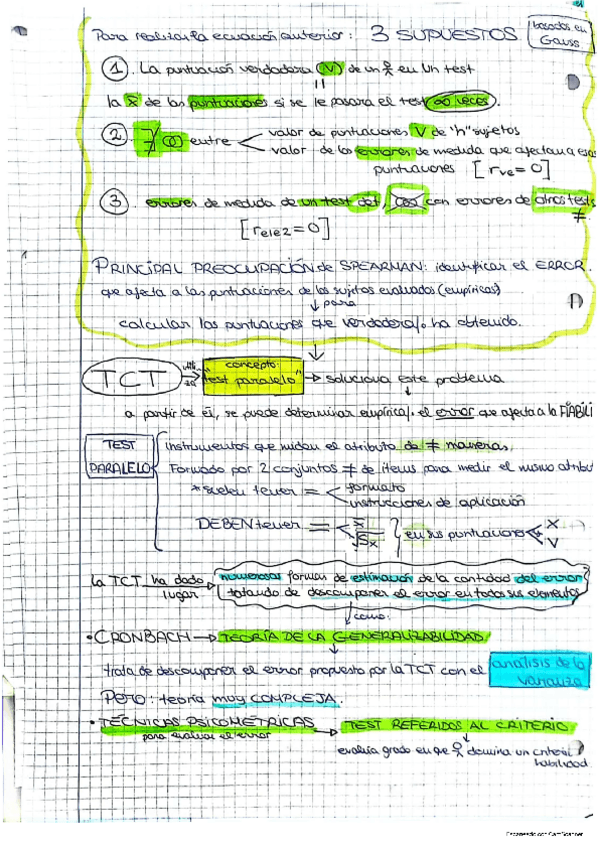 Para realizar la ecuación anterior: 3 SUPUESTOS
basados en Gauss
1. La puntuación verdadera (V) de un en un test
=
la x̄ de las puntuaciones si se le pasara el test ∞ veces.
2. entre valor de puntuaciones V de "n" sujetos
valor de los errores de medida que afectan a esas
puntuaciones [rve = 0]
3 errores de medida de un test det, con errores de otros tests
≠
[re1e2 = 0]
PRINCIPAL PREOCUPACIÓN de SPEARMAN: identificar el ERROR
que afecta a las puntuaciones de los sujetos evaluados (empíricas)
↓ para
calcular las puntuaciones que verdadera/. ha obtenido.
TCT → concepto "test paralelo" → soluciona este problema
a partir de él, se puede determinar empírica/. el error que afecta a la FIABILI
TEST PARALELO
instrumentos que miden el atributo de ≠ maneras,
Formado por 2 conjuntos ≠ de ítems para medir el mismo atribu
* suelen tener = formato
instrucciones de aplicación
DEBEN tener = x̄
Sx en sus puntuaciones X
V
la TCT ha dado lugar numerosas formas de estimación de la cantidad del error
tratando de descomponer el error en todos sus elementos
como:
• CRONBACH → TEORÍA DE LA GENERALIZABILIDAD
trata de descomponer el error propuesto por la TCT con el análisis de la varianza
Pero: teoría muy COMPLEJA.
• TÉCNICAS PSICOMÉTRICAS → TEST REFERIDOS AL CRITERIO
para evaluar el error
evalúa grado en que domina un criterio
habilidad
Escaneado con CamScanner